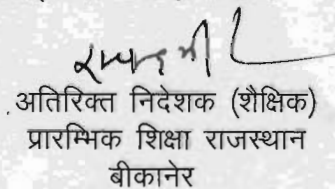 अतिरिक्त निदेशक (शैक्षिक)
प्रारम्भिक शिक्षा राजस्थान
बीकानेर